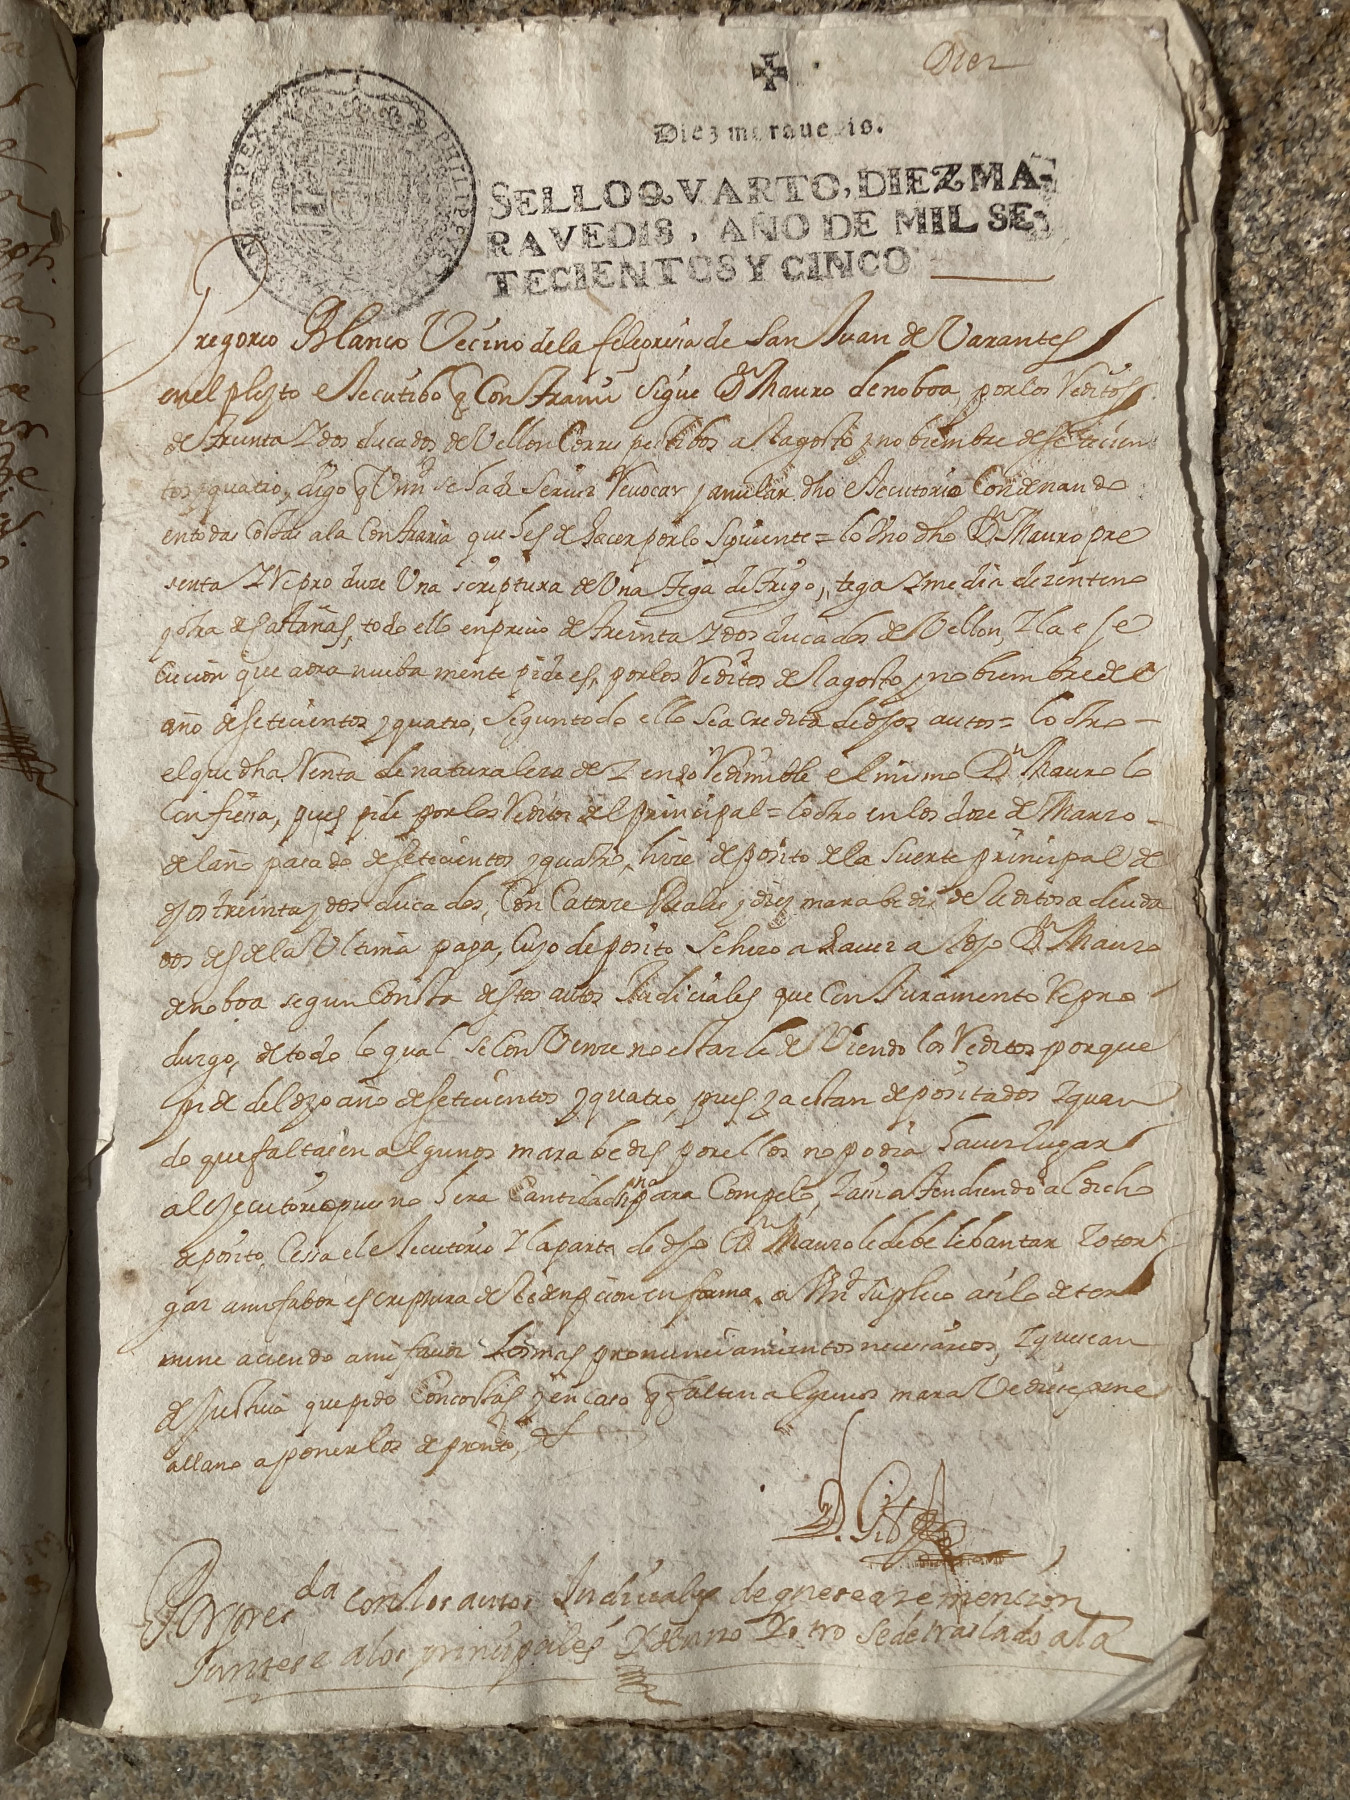 Diez
Diez maravedis.
PHILIPPVS
SELLO QVARTO, DIEZ MA-
RAVEDIS, AÑO DE MIL SE-
TECIENTOS Y CINCO
Gregorio Blanco Vecino de la feligresia de San Juan de Varantes
en el pleyto eSecutibo q Contrami sigue Dn Mauro de noboa por los Reditos
de treinta Y dos ducados de Vellon Corres pe tibos a agosto y nobiembre de setecien
tos y quatro, digo q Vmd se ha de Servir Revocar y anular dho eSecutorio Condenando
en todas Costas ala Contraria que es de hacer por lo siguiente = lo Uno dho Dn Mauro pre
senta Y Repro duze Una scriptura de Una tega de trigo, tega Y media de zenteno
y otra de Castañas, todo ello en precio de treinta Y dos ducados de Vellon, Y la ese
cucion que aora nueba mente pide es, por los Reditos del agosto y nobiembre de el
año de setecientos y quatro, segun todo ello se acredita de dhos autos = lo otro
el que dha Venta de naturaleza de Zenso Redimible el mismo Dn Mauro lo
Confiesa, pues pide por los Reditos del principal = lo otro en los doze de Marzo
del año pasado de setecientos y quatro, hize deposito de la suerte principal de
dhos treinta y dos ducados, Con Catorze Reales y diez marabedis de Reditos adeuda
dos desde la Ultima paga, Cuyo deposito se hizo a Saver al dho Dn Mauro
de noboa segun Consta destos autos Judiciales que Con Juramento Repro
duzgo, de todo lo qual se Con Venze no estarle deViendo los Reditos porque
pide del dho año de setecientos y quatro, pues ya estan depositados Y quan
do que faltasen algunos marabedis por ellos no podia haver lugar
al eSecutorio pues no sera Cantidad para Compelo, Y asi atendiendo al dicho
deposito Cessa el eSecutorio Y la parte de dho Dn Mauro le debe lebantar Y otor
gar a mi fabor escriptura de Redenpcion en forma, a Vmd suplico asi lo deter
mine aciendo a mi favor los mas pronunciamientos necesarios, Y que sean
de justicia que pido Con costas y en caso q falten algunos mara Vedises me
allano a ponerlos de pronto,
con los autos Judiciales de que se aze mencion
Juntese a los principales Y de uno Y otro se de traslado a la